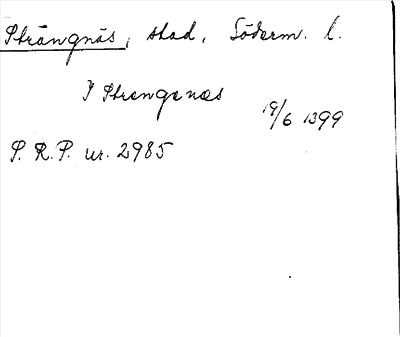 Strängnäs, stad, Söderm. l.
I Strengenæs
19/6 1399
S. R. P. nr. 2985